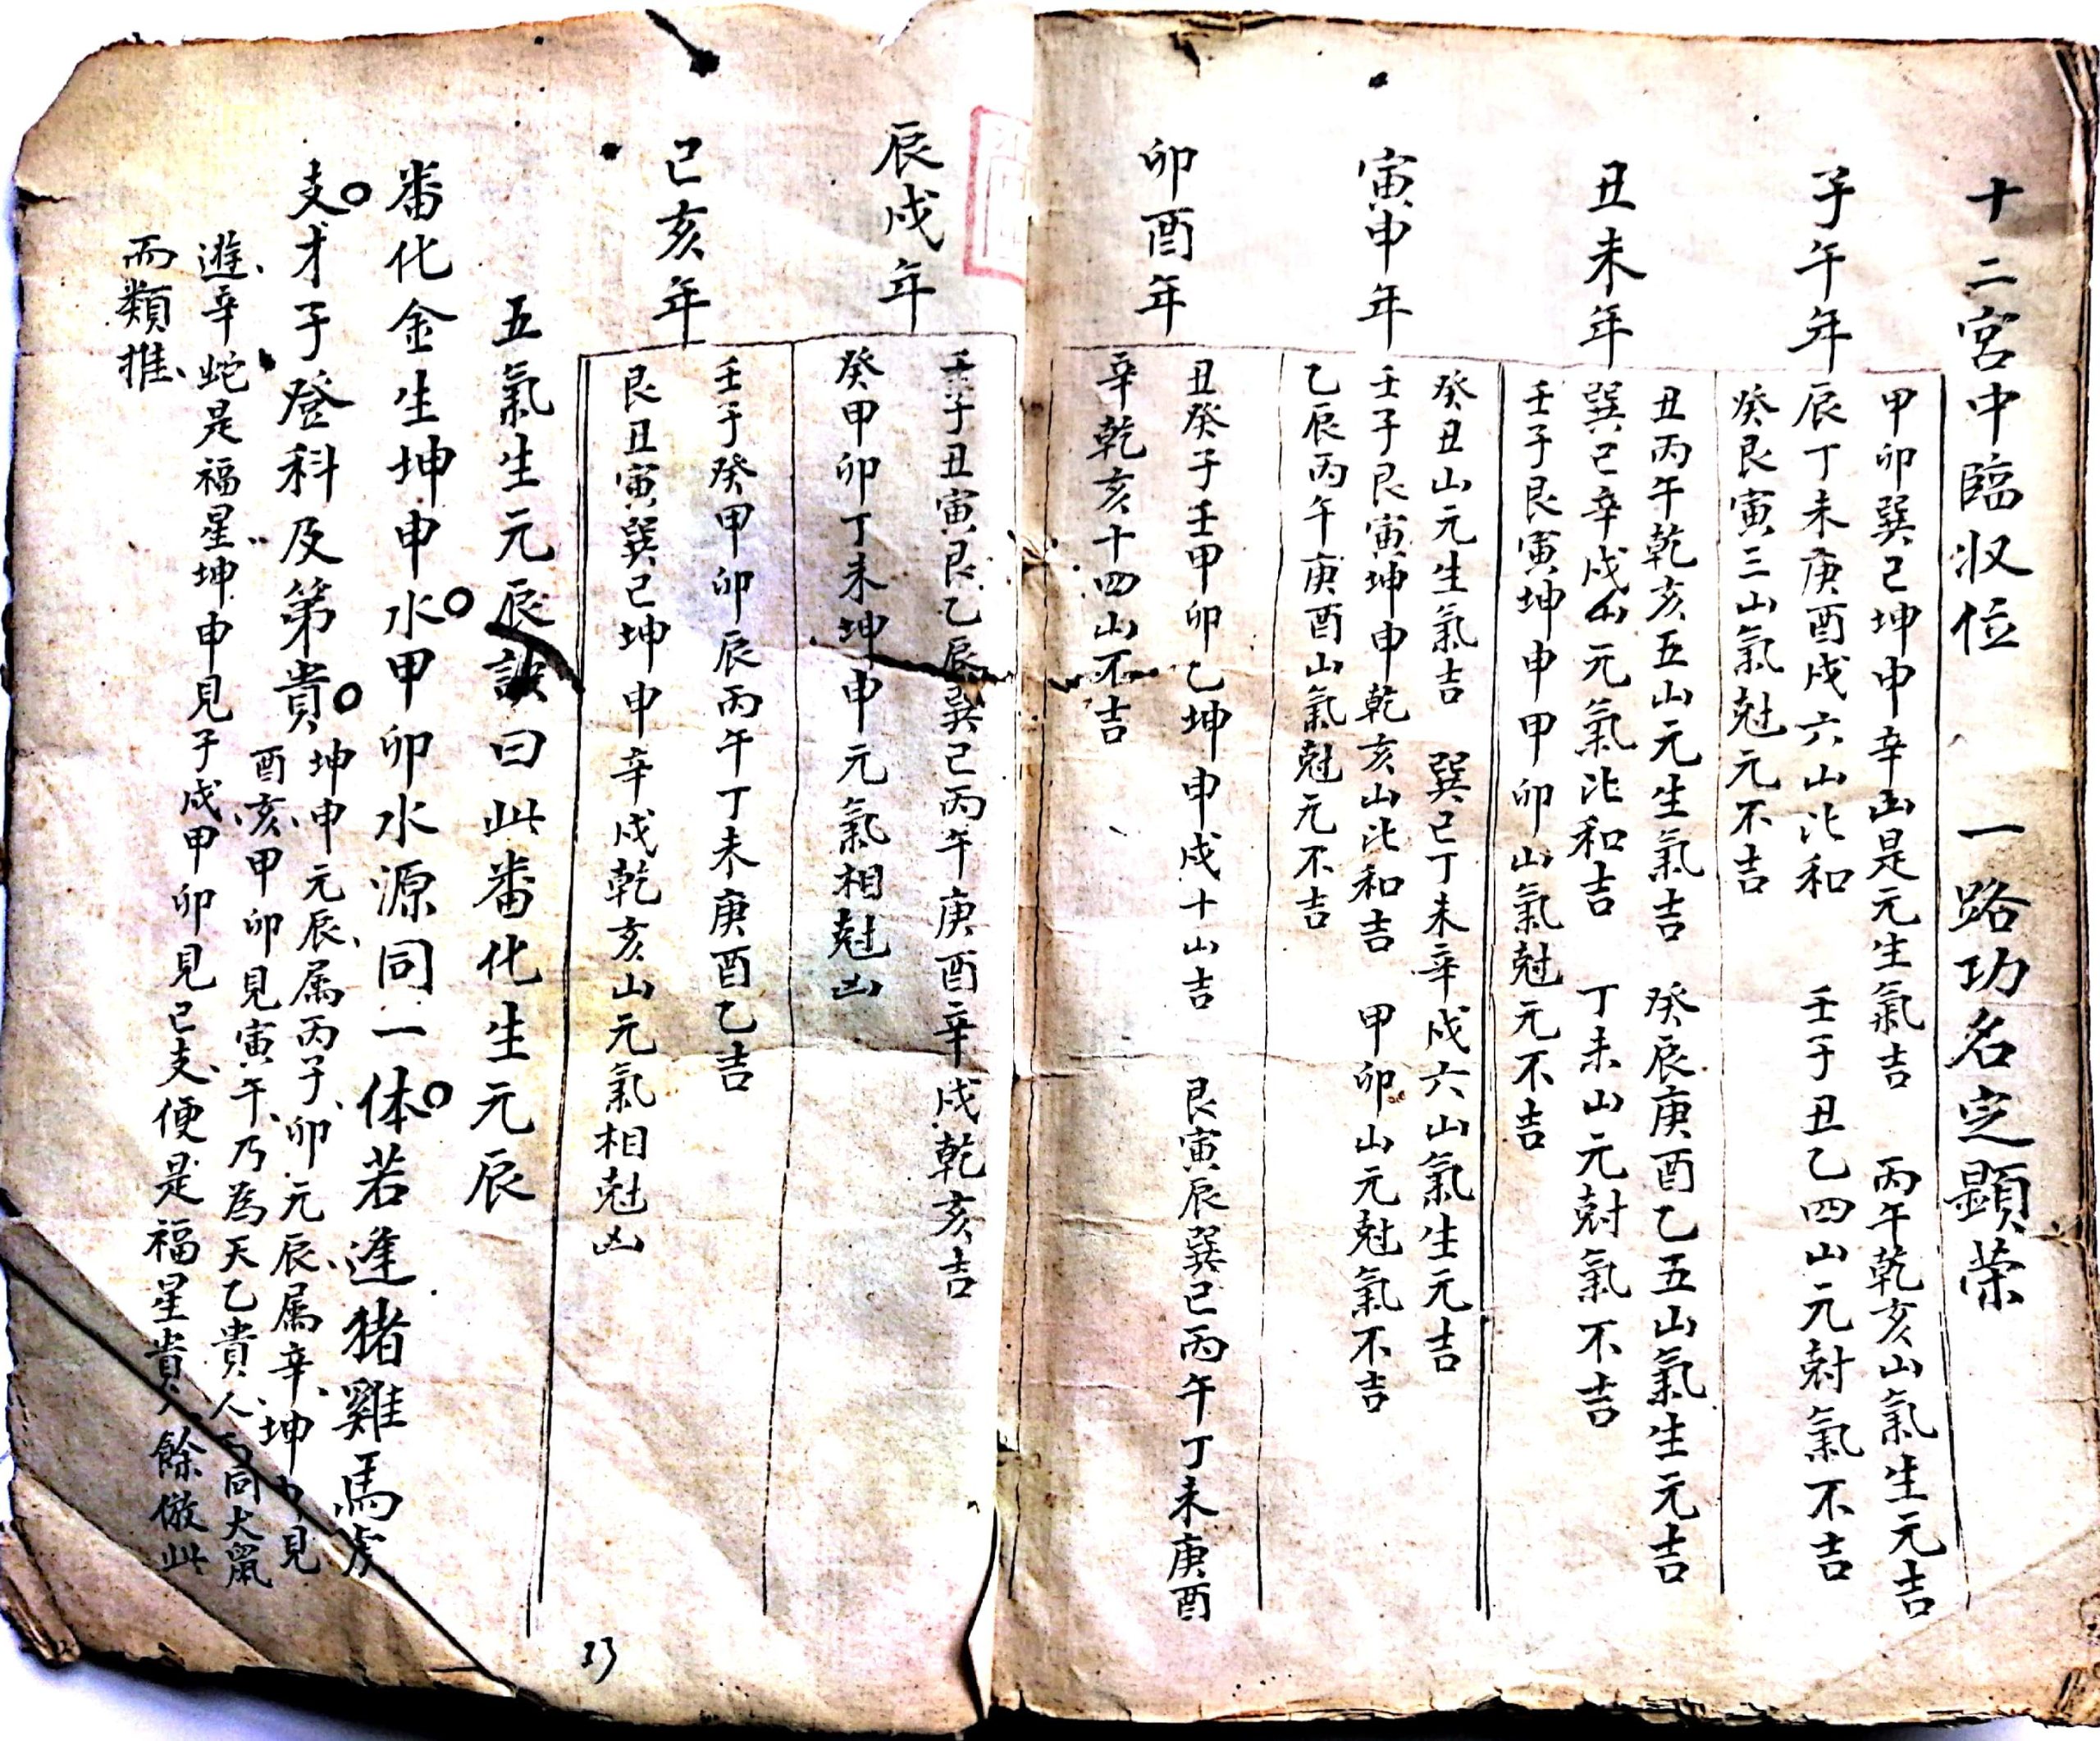 十二宮中臨收位　一路功名定顯荣
子午年
甲卯巽巳坤申辛山是元生氣吉　丙午乾亥山氣生元吉
辰丁未庚酉戌六山比和　壬子丑乙四山元尅氣不吉
癸艮寅三山氣尅元不吉
丑未年
丑丙午乾亥五山元生氣吉　癸辰庚酉乙五山氣生元吉
巽巳辛戌山元氣比和吉　丁未山元尅氣不吉
壬子艮寅坤申甲卯山氣尅元不吉
寅申年
癸丑山元生氣吉　巽巳丁未辛戌六山氣生元吉
壬子艮寅坤申乾亥山比和吉　甲卯山元尅氣不吉
乙辰丙午庚酉山氣尅元不吉
卯酉年
丑癸子壬甲卯乙坤申戌十山吉　艮寅辰巽巳丙午丁未庚酉
辛乾亥十四山不吉
辰戌年
壬子丑寅艮乙辰巽巳丙午庚酉辛戌乾亥吉
癸甲卯丁未坤申元氣相尅凶
巳亥年
壬子癸甲卯辰丙午丁未庚酉乙吉
艮丑寅巽巳坤申辛戌乾亥山元氣相尅凶
五氣生元辰訣曰此番化生元辰
番化金生坤申水甲卯水源同一体若逢猪雞馬虎
支才子登科及第貴
坤申元辰属丙子卯元辰属辛坤申見
酉亥甲卯見寅午乃為天乙貴人同犬鼠
遊辛蛇是福星坤申見子戌甲卯見巳支便是福星貴人餘倣此
而類推
23